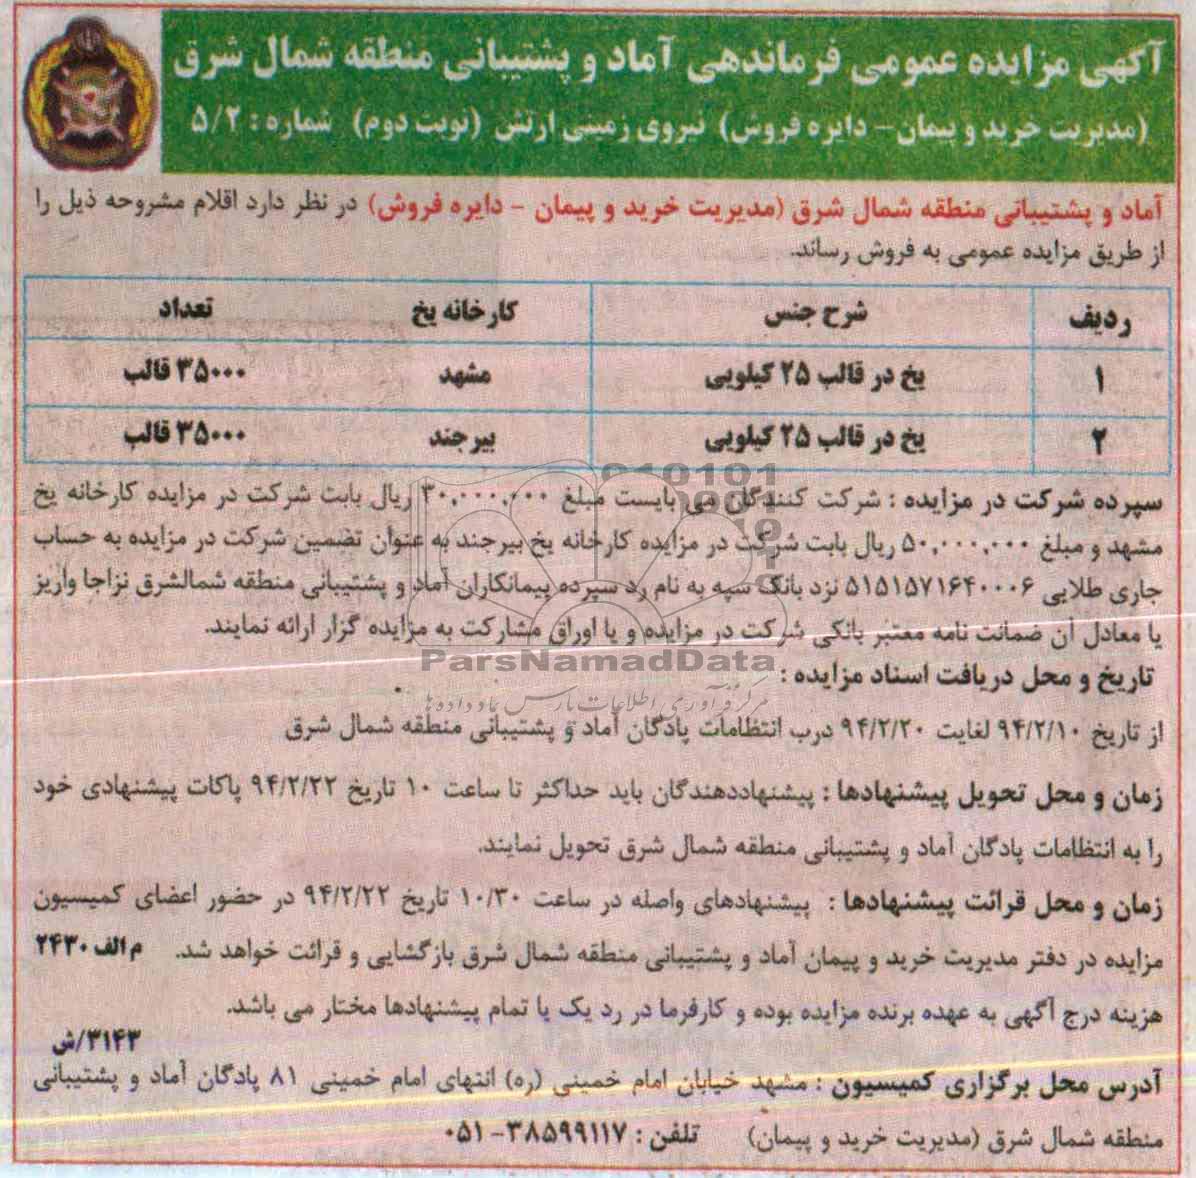 آگهی مزایده عمومی فرماندهی آماد و پشتیبانی منطقه شمال شرق
(مدیریت خرید و پیمان- دایره فروش) نیروی زمینی ارتش (نوبت دوم) شماره : ۵/۲
آماد و پشتیبانی منطقه شمال شرق (مدیریت خرید و پیمان - دایره فروش) در نظر دارد اقلام مشروحه ذیل را
از طریق مزایده عمومی به فروش رساند.
ردیف شرح جنس کارخانه یخ تعداد
۱ یخ در قالب ۲۵ کیلویی مشهد ۳۵۰۰۰ قالب
۲ یخ در قالب ۲۵ کیلویی بیرجند ۳۵۰۰۰ قالب
سپرده شرکت در مزایده : شرکت کنندگان می بایست مبلغ ۳۰,۰۰۰,۰۰۰ ریال بابت شرکت در مزایده کارخانه یخ
مشهد و مبلغ ۵۰,۰۰۰,۰۰۰ ریال بابت شرکت در مزایده کارخانه یخ بیرجند به عنوان تضمین شرکت در مزایده به حساب
جاری طلایی ۵۱۵۱۵۷۱۶۴۰۰۰۶ نزد بانک سپه به نام رد سپرده پیمانکاران آماد و پشتیبانی منطقه شمالشرق نزاجا واریز
یا معادل آن ضمانت نامه معتبر بانکی شرکت در مزایده و یا اوراق مشارکت به مزایده گزار ارائه نمایند.
ParsNamadData
تاریخ و محل دریافت اسناد مزایده :
مرکز فرآوری اطلاعات پارس نماد داده ها
از تاریخ ۹۴/۲/۱۰ لغایت ۹۴/۲/۲۰ درب انتظامات پادگان آماد و پشتیبانی منطقه شمال شرق
زمان و محل تحویل پیشنهادها : پیشنهاددهندگان باید حداکثر تا ساعت ۱۰ تاریخ ۹۴/۲/۲۲ پاکات پیشنهادی خود
را به انتظامات پادگان آماد و پشتیبانی منطقه شمال شرق تحویل نمایند.
زمان و محل قرائت پیشنهادها : پیشنهادهای واصله در ساعت ۱۰/۳۰ تاریخ ۹۴/۲/۲۲ در حضور اعضای کمیسیون
مزایده در دفتر مدیریت خرید و پیمان آماد و پشتیبانی منطقه شمال شرق بازگشایی و قرائت خواهد شد. م الف ۲۴۳۰
هزینه درج آگهی به عهده برنده مزایده بوده و کارفرما در رد یک یا تمام پیشنهادها مختار می باشد.
۳۱۴۳/ش
آدرس محل برگزاری کمیسیون : مشهد خیابان امام خمینی (ره) انتهای امام خمینی ۸۱ پادگان آماد و پشتیبانی
منطقه شمال شرق (مدیریت خرید و پیمان) تلفن : ۳۸۵۹۹۱۱۷-۰۵۱